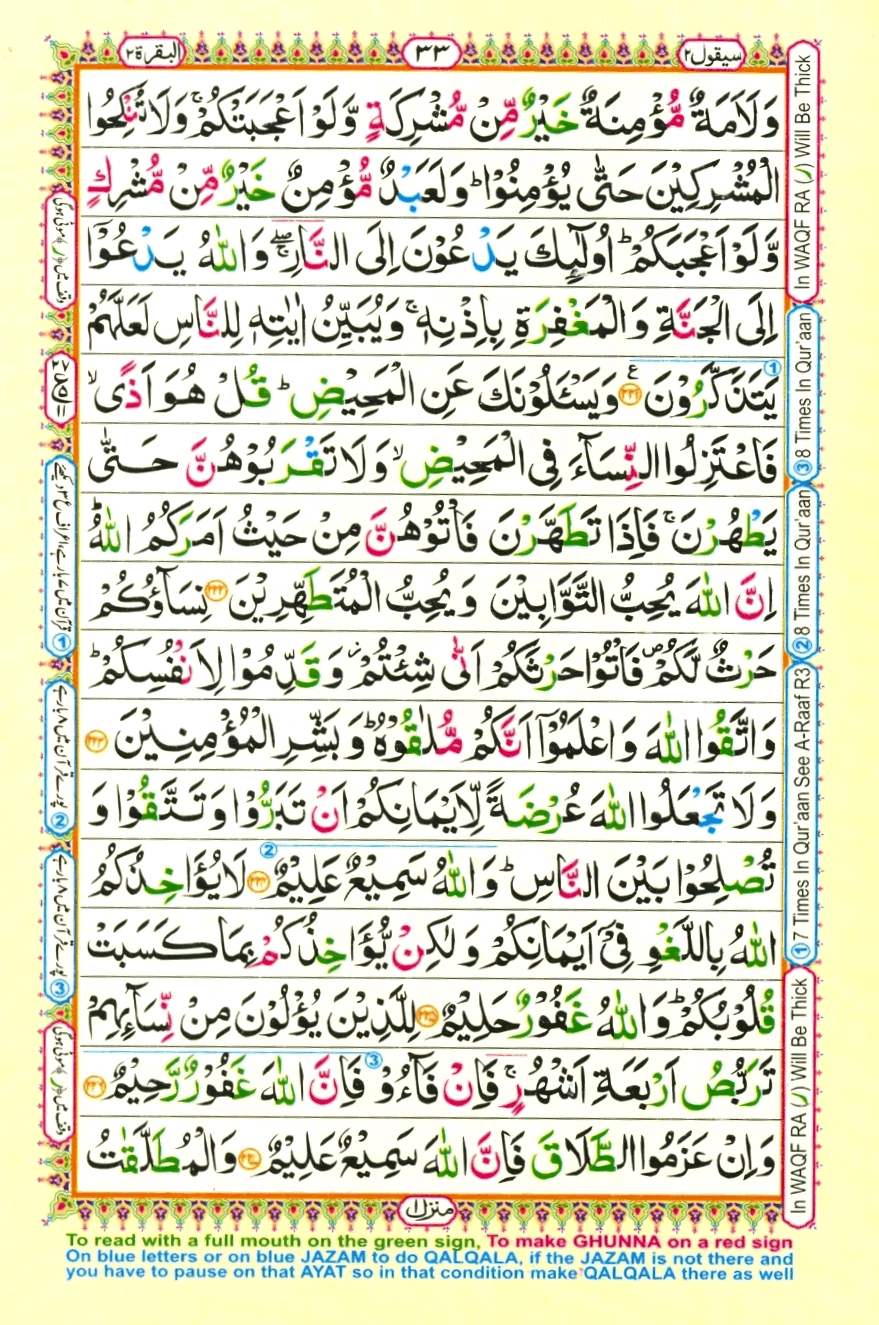 سيقول ٢
٣٣
البقرة ٢
وَلَاَمَةٌ مُّؤْمِنَةٌ خَيْرٌ مِّنْ مُّشْرِكَةٍ وَّلَوْ اَعْجَبَتْكُمْ ۚ وَلَا تُنْكِحُوا
الْمُشْرِكِيْنَ حَتّٰى يُؤْمِنُوْا ؕ وَلَعَبْدٌ مُّؤْمِنٌ خَيْرٌ مِّنْ مُّشْرِكٍ
وَّلَوْ اَعْجَبَكُمْ ؕ اُولٰٓئِكَ يَدْعُوْنَ اِلَى النَّارِ ۖۚ وَاللّٰهُ يَدْعُوْٓا
اِلَى الْجَنَّةِ وَالْمَغْفِرَةِ بِاِذْنِهٖ ۚ وَيُبَيِّنُ اٰيٰتِهٖ لِلنَّاسِ لَعَلَّهُمْ
يَتَذَكَّرُوْنَ ﴿٢٢١﴾ ع وَيَسْـَٔلُوْنَكَ عَنِ الْمَحِيْضِ ؕ قُلْ هُوَ اَذًى ۙ
فَاعْتَزِلُوا النِّسَآءَ فِى الْمَحِيْضِ ۙ وَلَا تَقْرَبُوْهُنَّ حَتّٰى
يَطْهُرْنَ ۚ فَاِذَا تَطَهَّرْنَ فَاْتُوْهُنَّ مِنْ حَيْثُ اَمَرَكُمُ اللّٰهُ ؕ
اِنَّ اللّٰهَ يُحِبُّ التَّوَّابِيْنَ وَيُحِبُّ الْمُتَطَهِّرِيْنَ ﴿٢٢٢﴾ نِسَآؤُكُمْ
حَرْثٌ لَّكُمْ ۪ فَاْتُوْا حَرْثَكُمْ اَنّٰى شِئْتُمْ ۫ وَقَدِّمُوْا لِاَنْفُسِكُمْ ؕ
وَاتَّقُوا اللّٰهَ وَاعْلَمُوْٓا اَنَّكُمْ مُّلٰقُوْهُ ؕ وَبَشِّرِ الْمُؤْمِنِيْنَ ﴿٢٢٣﴾
وَلَا تَجْعَلُوا اللّٰهَ عُرْضَةً لِّاَيْمَانِكُمْ اَنْ تَبَرُّوْا وَتَتَّقُوْا وَ
تُصْلِحُوْا بَيْنَ النَّاسِ ؕ وَاللّٰهُ سَمِيْعٌ عَلِيْمٌ ﴿٢٢٤﴾ لَا يُؤَاخِذُكُمُ
اللّٰهُ بِاللَّغْوِ فِىْٓ اَيْمَانِكُمْ وَلٰكِنْ يُّؤَاخِذُكُمْ بِمَا كَسَبَتْ
قُلُوْبُكُمْ ؕ وَاللّٰهُ غَفُوْرٌ حَلِيْمٌ ﴿٢٢٥﴾ لِلَّذِيْنَ يُؤْلُوْنَ مِنْ نِّسَآئِهِمْ
تَرَبُّصُ اَرْبَعَةِ اَشْهُرٍ ۚ فَاِنْ فَآءُوْ فَاِنَّ اللّٰهَ غَفُوْرٌ رَّحِيْمٌ ﴿٢٢٦﴾
وَاِنْ عَزَمُوا الطَّلَاقَ فَاِنَّ اللّٰهَ سَمِيْعٌ عَلِيْمٌ ﴿٢٢٧﴾ وَالْمُطَلَّقٰتُ
منزل ١
In WAQF RA (ر) Will Be Thick
③ 8 Times In Qur'aan
② 8 Times In Qur'aan
① 7 Times In Qur'aan See A-Raaf R3
In WAQF RA (ر) Will Be Thick
وقف میں ﴿ر﴾ موٹی ہوگی
② پورے قرآن میں ۸ بار ہے
③ پورے قرآن میں ۸ بار ہے
وقف میں ﴿ر﴾ موٹی ہوگی
To read with a full mouth on the green sign, To make GHUNNA on a red sign
On blue letters or on blue JAZAM to do QALQALA, if the JAZAM is not there and
you have to pause on that AYAT so in that condition make QALQALA there as well